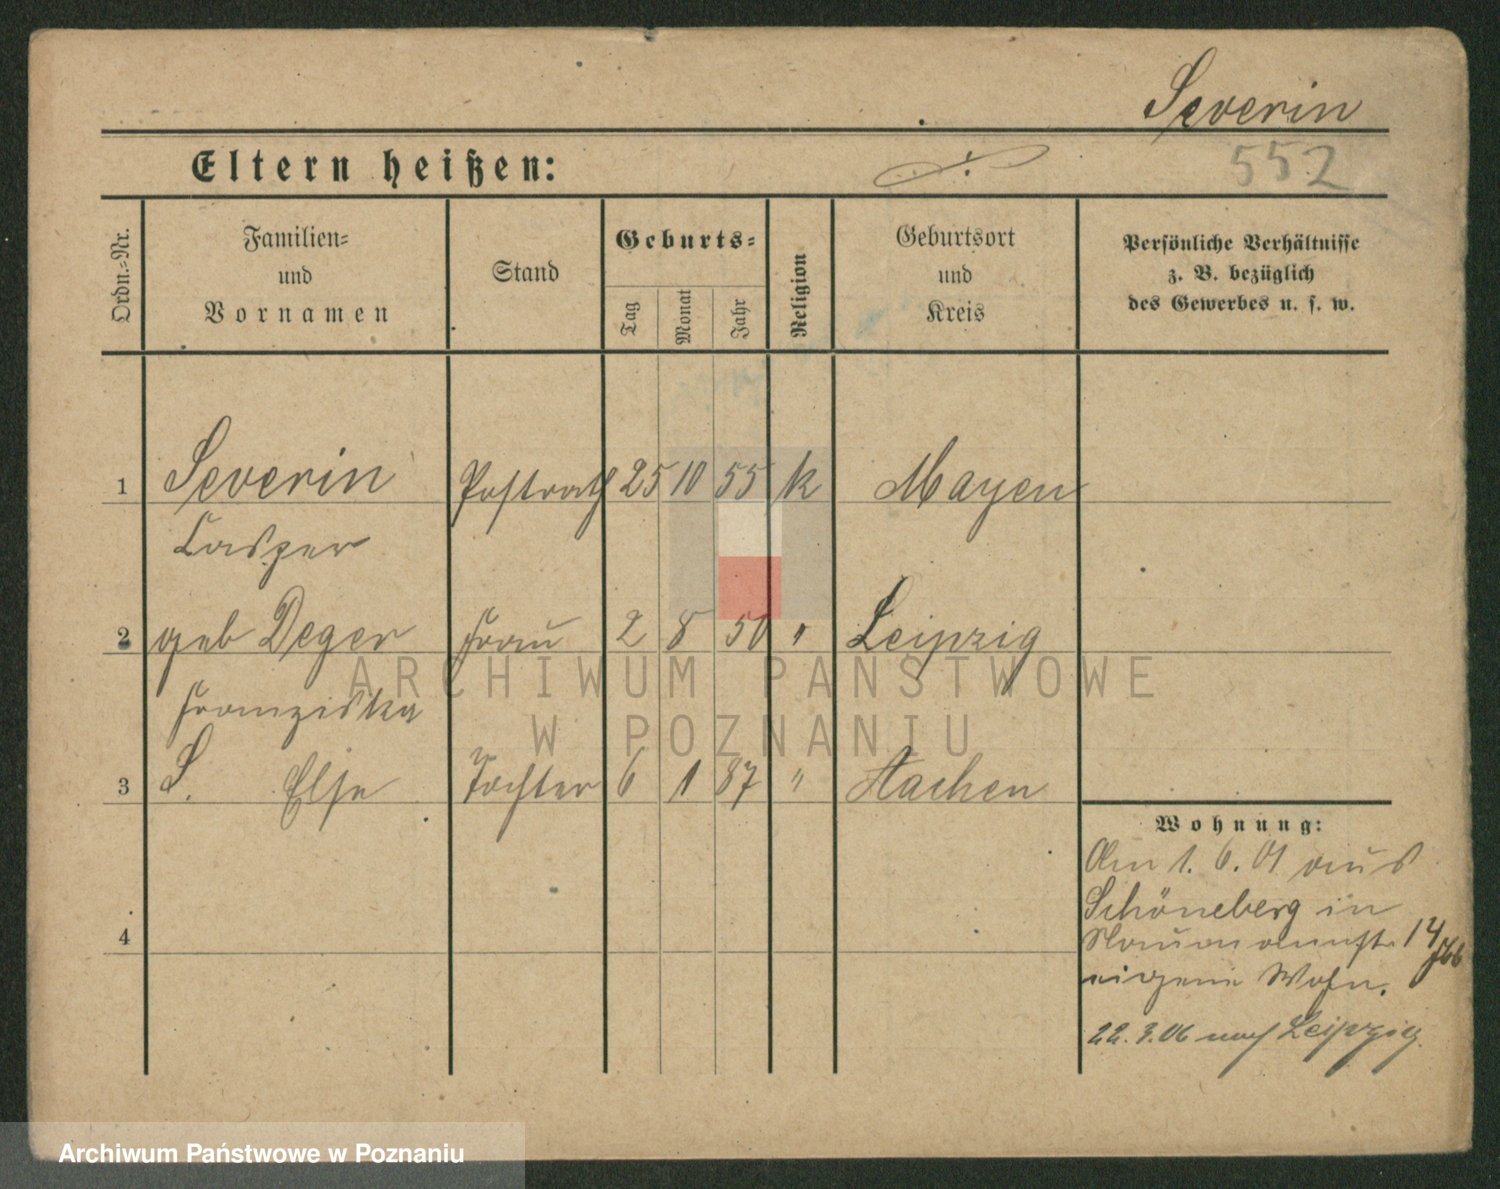 Severin
Eltern heißen:
552
Ordn.-Nr.
Familien-
und
Vornamen
Stand
Geburts-
Tag
Monat
Jahr
Religion
Geburtsort
und
Kreis
Persönliche Verhältnisse
z. B. bezüglich
des Gewerbes u. s. w.
1 Severin Postrath 25 10 55 k Mayen
Casper
2 geb Deger Frau 2 8 50 " Leipzig
Franziska
3 S. Else Tochter 6 1 87 " Aachen
4
Wohnung:
Am 1. 6. 01 aus
Schöneberg in
14
eigene Wohn.
22. 3. 06 nach Leipzig
ARCHIWUM PAŃSTWOWE
W POZNANIU
Archiwum Państwowe w Poznaniu